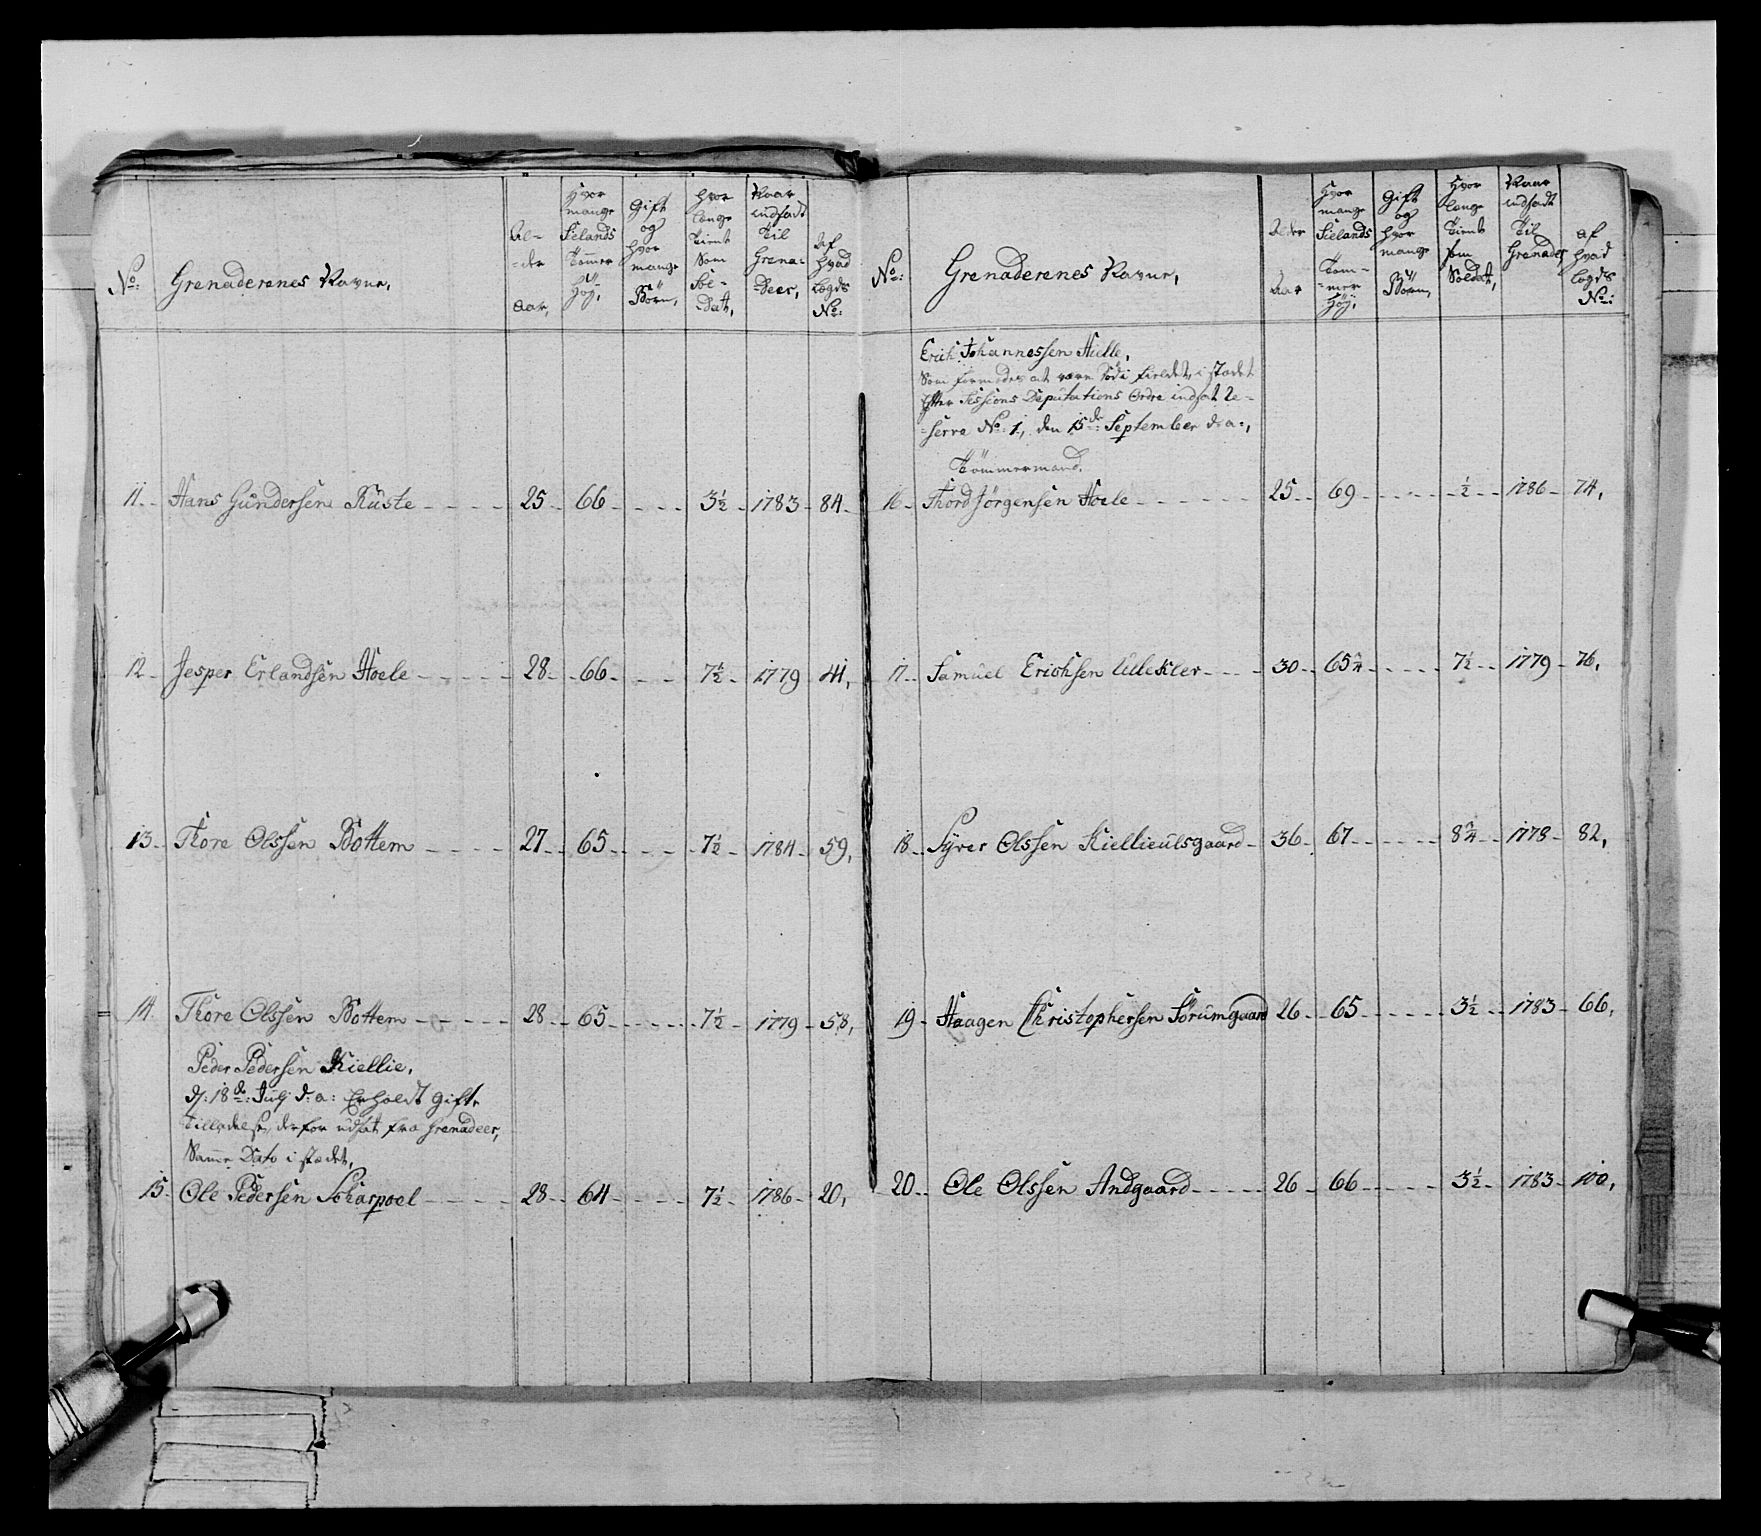 No:
Grenaderenes Navne,
Al-
-der
Aar,
Hvor
mange
Sielands
Tomer
Høy,
Gift
og
hvor
mange
Börn,
hvor
længe
Tient
Som
Sol-
-dat,
Naar
indsadt
Til
Grena-
-deer,
Af
hvad
Lægds
No:
11. Hans Gundersen Ruste 25 66 3½ 1783 84.
12. Jesper Erlandsen Hoele 28 66 7½ 1779 41,
13. Thore Olssen Bottem 27 65 7½ 1784 59,
14. Thore Olssen Bottem 28 65 7½ 1779 58,
Peder Pedersen Kiellie,
d: 18de: July d: a: Erholdt Gifte
Tilladelse, derfor udsat fra Grenadeer,
Samme Dato i stædet,
15. Ole Pedersen Scharpoel 28 64 7½ 1786 20,
No:
Grenaderenes Navne,
Alder
Aar
Hvor
mange
Sielands
Tom-
-mer
Høy,
Gift
og
hvor
mange
Börn,
Hvor
længe
Tient
som
Soldat,
Naar
indsadt
Til
Grenadeer
af
hvad
Lægds
No:
Erich Johannessen Hielle,
Som formodes at være död i Fieldet, i stædet
Efter Sessions Deputations Ordre indsat Re-
-serve No: 1, den 15de: September d: a:,
Tömmermand.
16. Thord Jörgensen Hoele 25 69 ½ 1786 74,
17. Samuel Erichsen Ullekler 30 65¾ 7½ 1779 76,
18. Syver Olssen Kiellieulsgaard 36 67 8¾ 1778 82,
19. Haagen Christophersen Sörumgaard 26 65 3½ 1783 66,
20. Ole Olssen Andgaard 26 66 3½ 1783 100,